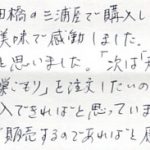 田橋の三浦屋で購入し
美味で感動しました。
と思いました。「次は「
巣ごもり」を注文したいの
入できればと思っていま
ど販売するのであればと